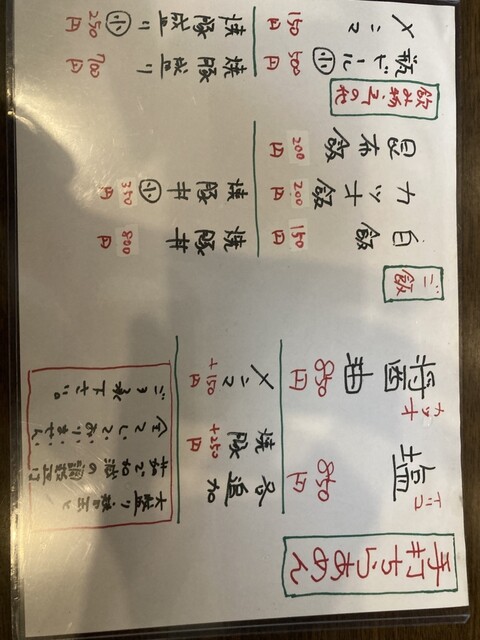 手打ちらあめん
コブ
塩 850円
カツオ
醤油 850円
各追加
焼豚 +250円
メンマ +150円
大盛り 替玉と
油の調整は
しておりません
ご了承下さい。
ご飯
白飯 150円
カツオ飯 200円
昆布飯 200円
焼豚丼 800円
焼豚丼 小 350円
飲み物その他
瓶ビール 小 500円
メンマ 150円
焼豚盛り 700円
焼豚盛り 小 250円